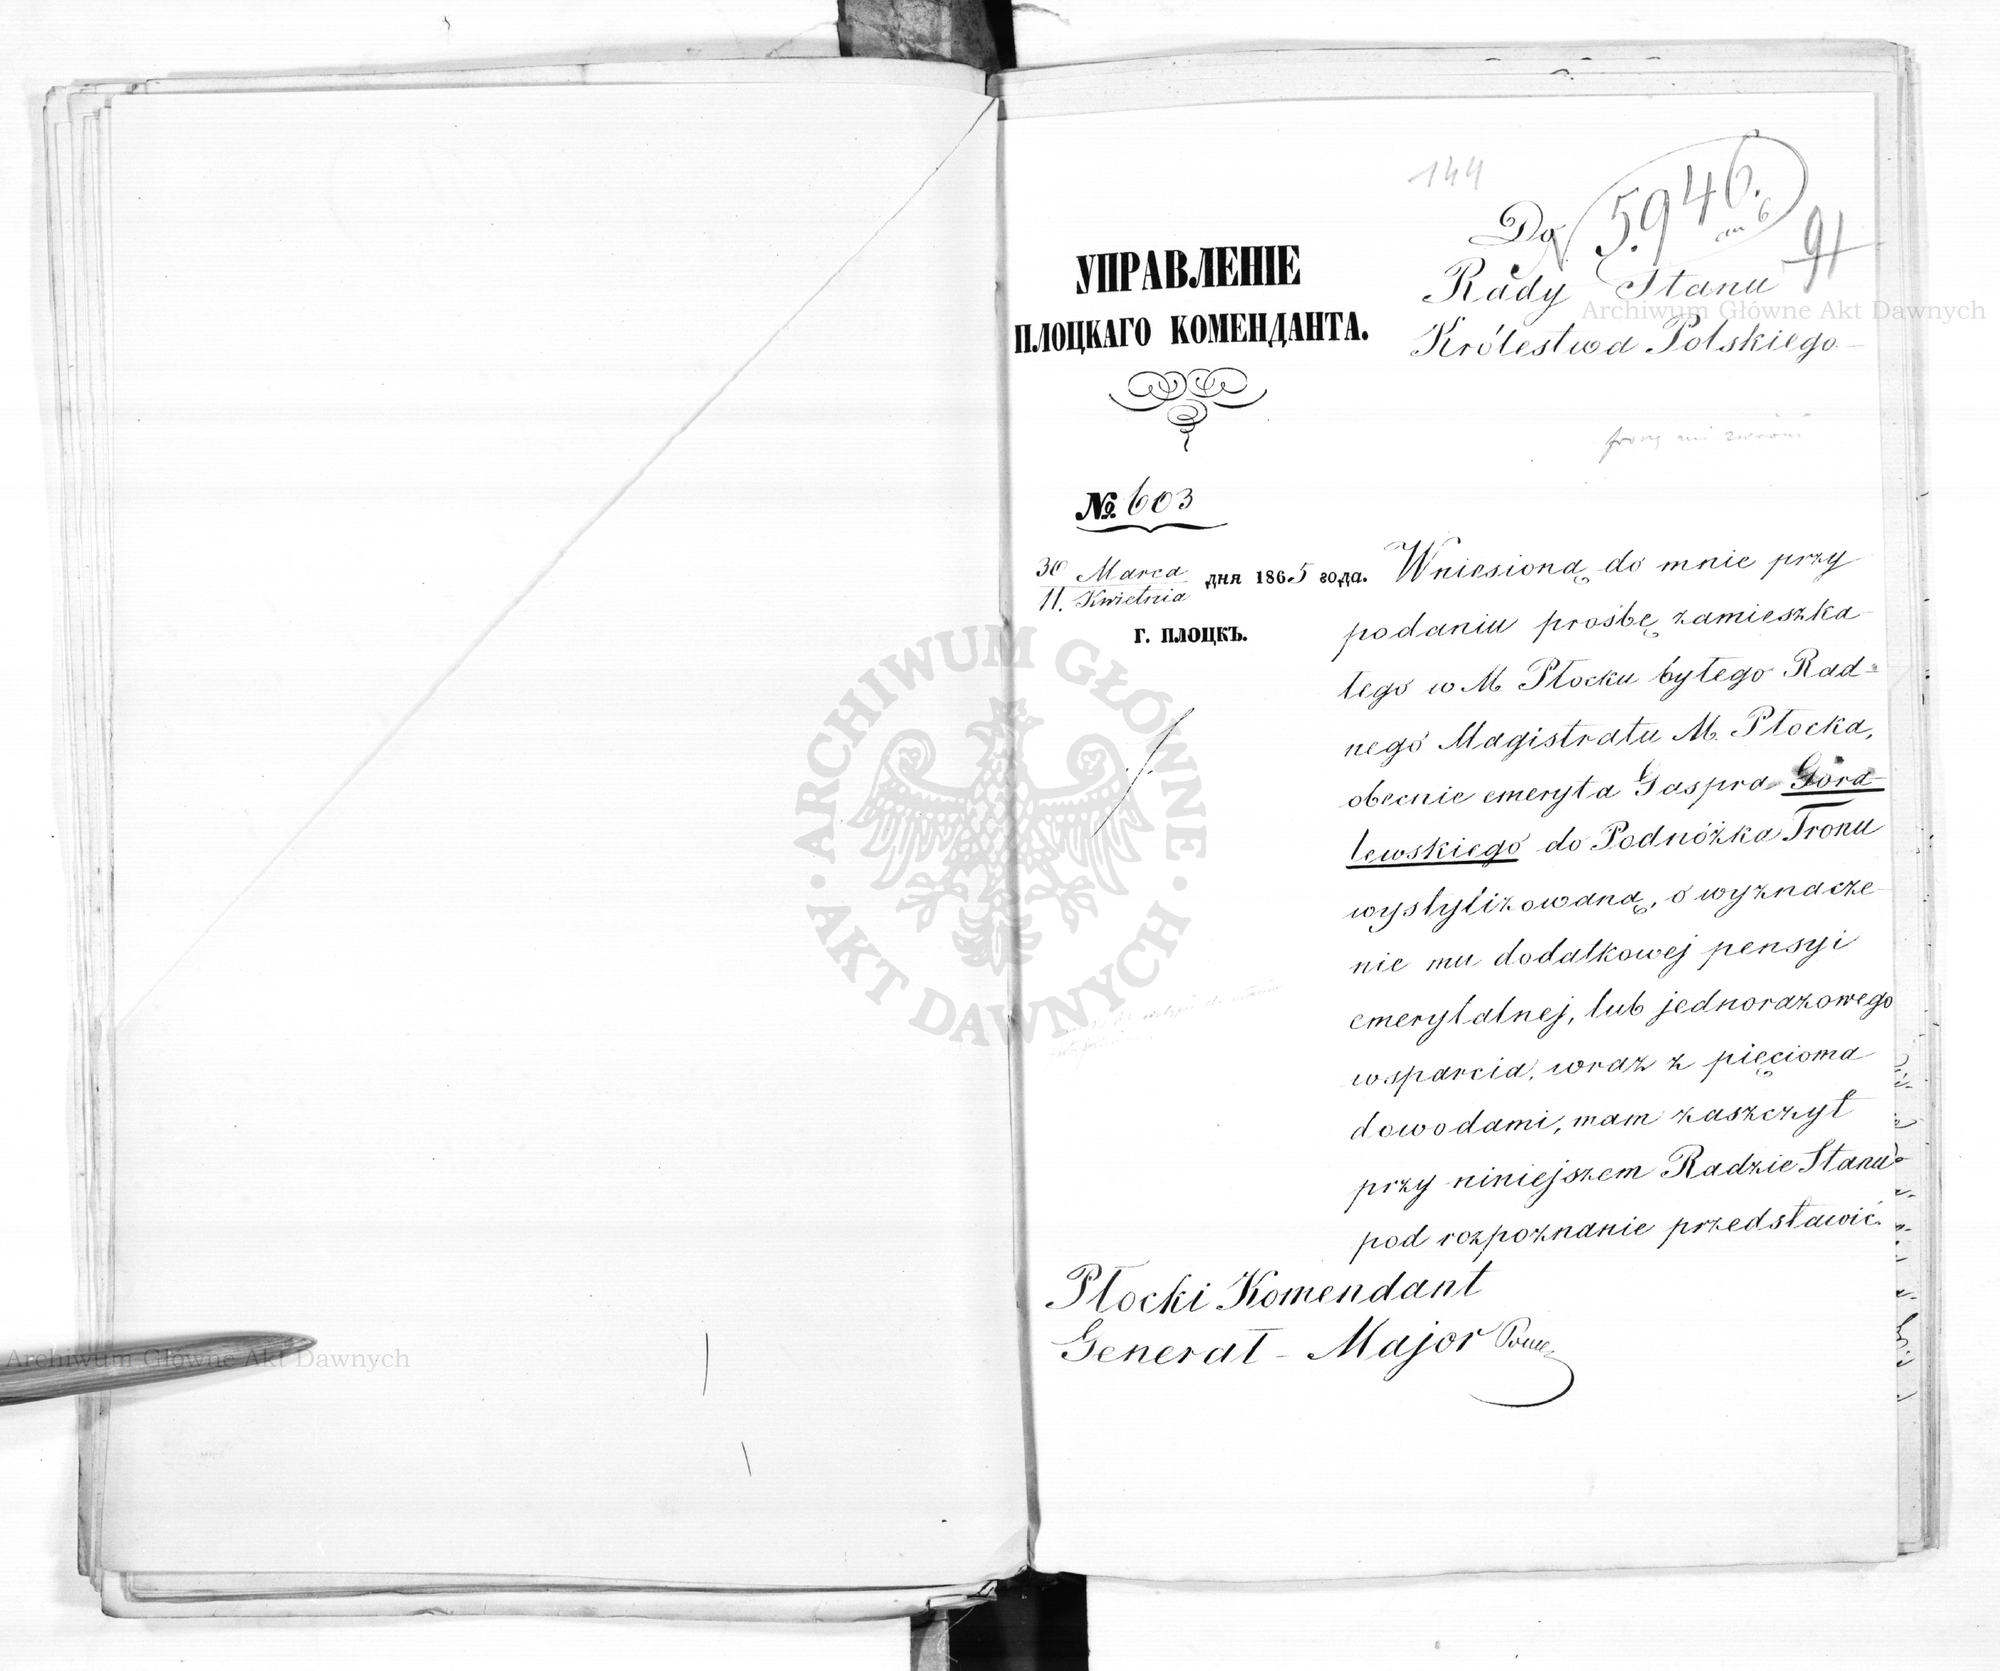 144
5.946.
91
Do
Rady Stanu
Królestwa Polskiego
УПРАВЛЕНІЕ
ПЛОЦКАГО КОМЕНДАНТА.
№ 603
30 Marca
11. Kwietnia
дня 1865 года.
Г. ПЛОЦКЪ.
Wniesioną do mnie przy
podaniu prośbę zamieszka-
łego w M. Płocku byłego Rad-
nego Magistratu M. Płocka,
obecnie emeryta Gaspra Góra-
lewskiego do Podnóżka Tronu
wystylizowaną, o wyznacze-
nie mu dodatkowej pensyi
emerytalnej, lub jednorazowego
wsparcia, wraz z pięcioma
dowodami, mam zaszczyt
przy niniejszem Radzie Stanu
pod rozpoznanie przedstawić.
Płocki Komendant
Generał-Major
ARCHIWUM GŁÓWNE AKT DAWNYCH
Archiwum Główne Akt Dawnych
Archiwum Główne Akt Dawnych